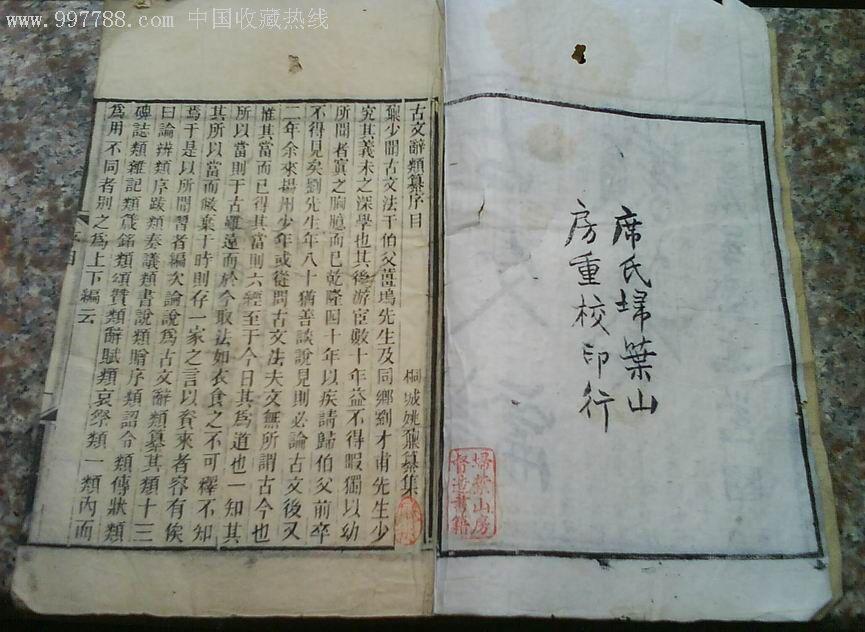 www.997788.com 中国收藏热线
席氏埽葉山
房重校印行
埽葉山房
督造書籍
古文辭類纂序目
桐城姚鼐纂集
鼐少聞古文法于伯父薑塢先生及同鄉劉才甫先生少
究其義未之深學也其後游宦數十年益不得暇獨以幼
所聞者寘之胸臆而已乾隆四十年以疾請歸伯父前卒
不得見矣劉先生年八十猶善談說見則必論古文後又
二年余來揚州少年或從問古文法夫文無所謂古今也
惟其當而已得其當則六經至于今日其為道也一知其
所以當則于古雖遠而於今取法如衣食之不可釋不知
其所以當而敝棄于時則存一家之言以資來者容有俟
焉于是以所聞習者編次論說為古文辭類纂其類十三
曰論辨類序跋類奏議類書說類贈序類詔令類傳狀類
碑誌類雜記類箴銘類頌贊類辭賦類哀祭類一類內而
為用不同者別之為上下編云